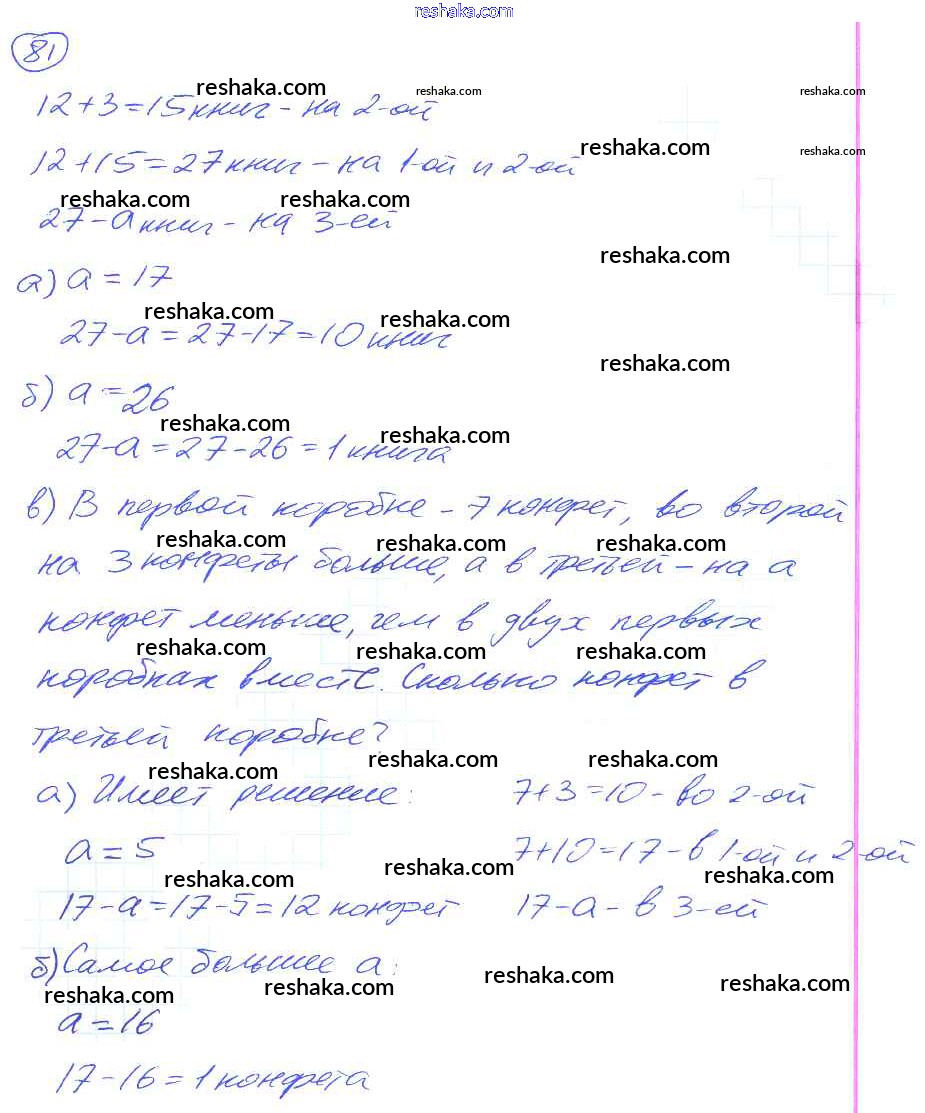 reshaka.com
81
reshaka.com reshaka.com reshaka.com
12+3=15 книг - на 2-ой
reshaka.com reshaka.com
12+15=27 книг - на 1-ой и 2-ой
reshaka.com reshaka.com
27-а книг - на 3-ей
reshaka.com
а) а = 17
reshaka.com reshaka.com
27-а = 27-17=10 книг
reshaka.com
б) а = 26
reshaka.com reshaka.com
27-а = 27-26 = 1 книга
в) В первой коробке - 7 конфет, во второй
reshaka.com reshaka.com reshaka.com
на 3 конфеты больше, а в третьей - на а
конфет меньше, чем в двух первых
reshaka.com reshaka.com reshaka.com
коробках вместе. Сколько конфет в
третьей коробке?
reshaka.com reshaka.com reshaka.com
а) Имеет решение: 7+3=10 - во 2-ой
а = 5 7+10=17 - в 1-ой и 2-ой
reshaka.com reshaka.com reshaka.com
17-а=17-5=12 конфет 17-а - в 3-ей
б) Самое большее а:
reshaka.com reshaka.com reshaka.com reshaka.com
а = 16
17-16=1 конфета